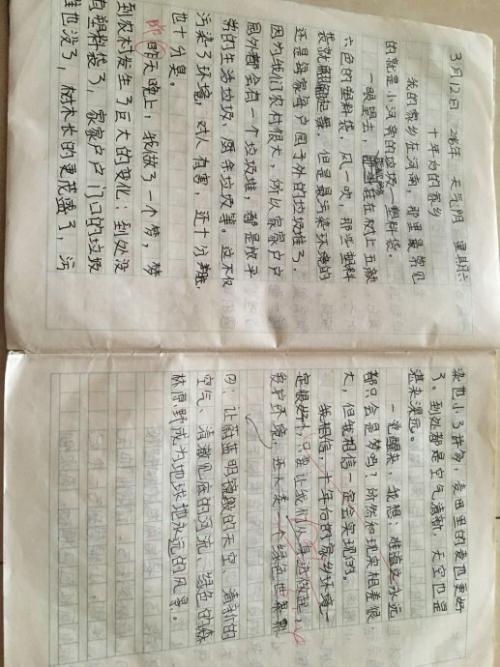 3月12日 2016年 天气阴 星期六
十年后的家乡
我的家乡在河南，那里最常见
的就是小河旁的垃圾，塑料袋。
一眼望去，挂在树上五颜
六色的塑料袋，风一吹，那些塑料
袋就翩翩起舞，但是最污染环境的
还是每家每户园子外的垃圾堆了，
因为我们农村很大，所以家家户户
园外都会有一个垃圾堆，都是成年
的生活垃圾，厨余垃圾等。这不仅
污染了环境，对人有害，还十分难，
也十分臭。
昨天晚上，我做了一个梦，梦
到农村发生了巨大的变化：到处没
有塑料袋了，家家户户门口的垃圾
堆也没了，树木长的更茂盛了，污
染也小了许多，麦田里的麦也更好
了。到处都是空气清新，天空也是
湛蓝深远。
一觉醒来，我想：难道这永远
都只会是梦吗？所然和现实相差很
大，但我相信一定会实现的。
我相信，十年后的家乡环境一
定很好，只要让我们从身边做起，
爱护环境，还大美一个绿色世界
四：让蔚蓝明镜般的天空、清新的
空气、清澈见底的河流、绿色的森
林原野成为地球地永远的风景。